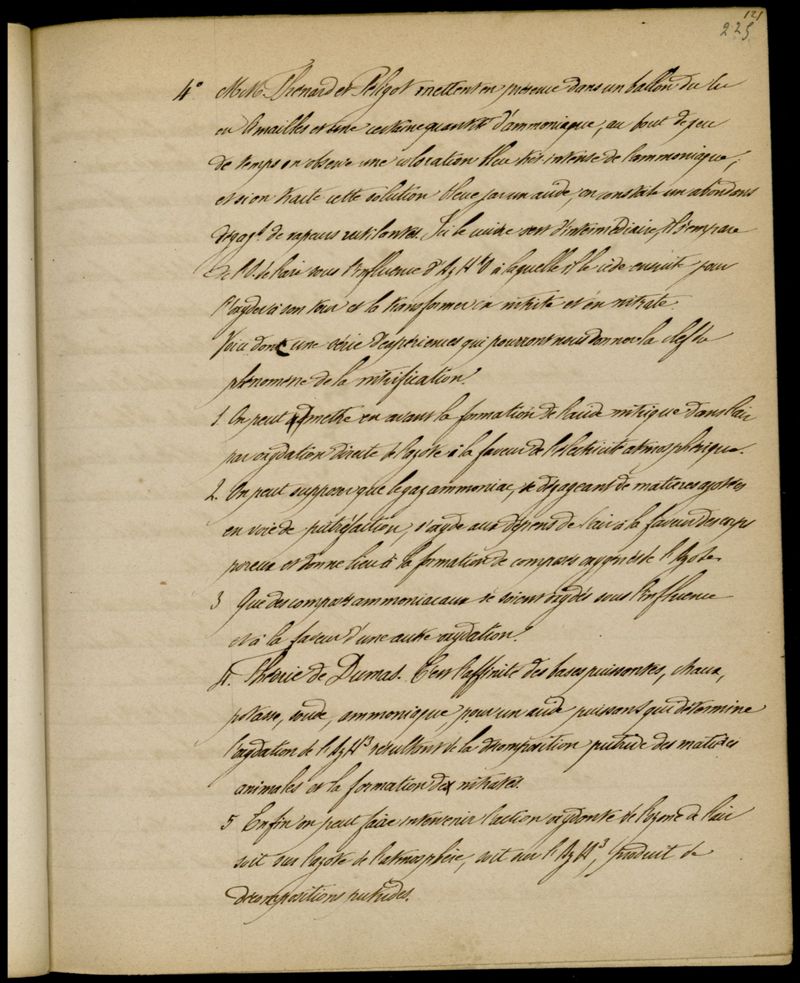 121
225
4° M.M. Thénard et Péligot mettent en présence dans un ballon du cu
en limailles et une certaine quantité d'ammoniaque, au bout de peu
de temps on observe une coloration bleu très intense de l'ammoniaque,
et si on traite cette solution bleue par un acide, on constate un abondans
dégagt. de vapeurs rutilantes. Ici le cuivre sert d'intermédiaire, il s'empare
de l'O. de l'air sous l'influence d'AzH4O à laquelle il le cède ensuite pour
l'oxyder à son tour et la transformer en nitrite et en nitrate.
Voici donc une série d'expériences qui pourront nous donner la clef du
phénomène de la nitrification.
1. On peut admettre en avant la formation de l'acide nitrique dans l'air
par oxydation directe de l'azote à la faveur de l'électricité atmosphérique.
2. On peut supposer que le gaz ammoniac, se dégageant de matières azotées
en voie de putréfaction, s'oxyde aux dépens de l'air à la faveur des corps
poreux et donne lieu à la formation de composés oxygénés de l'Azote.
3 Que des composés ammoniacaux se soient oxydés sous l'influence
et à la faveur d'une autre oxydation.
4. Théorie de Dumas. C'est l'affinité des bases puissantes, chaux,
potasse, soude, ammoniaque, pour un acide puissant qui détermine
l'oxydation de l'AzH3 résultant de la décomposition putride des matières
animales et la formation des nitrates.
5 Enfin on peut faire intervenir l'action oxydante de l'ozone de l'air
soit sur l'azote de l'atmosphère, soit sur l'AzH3, produit de
décompositions putrides.